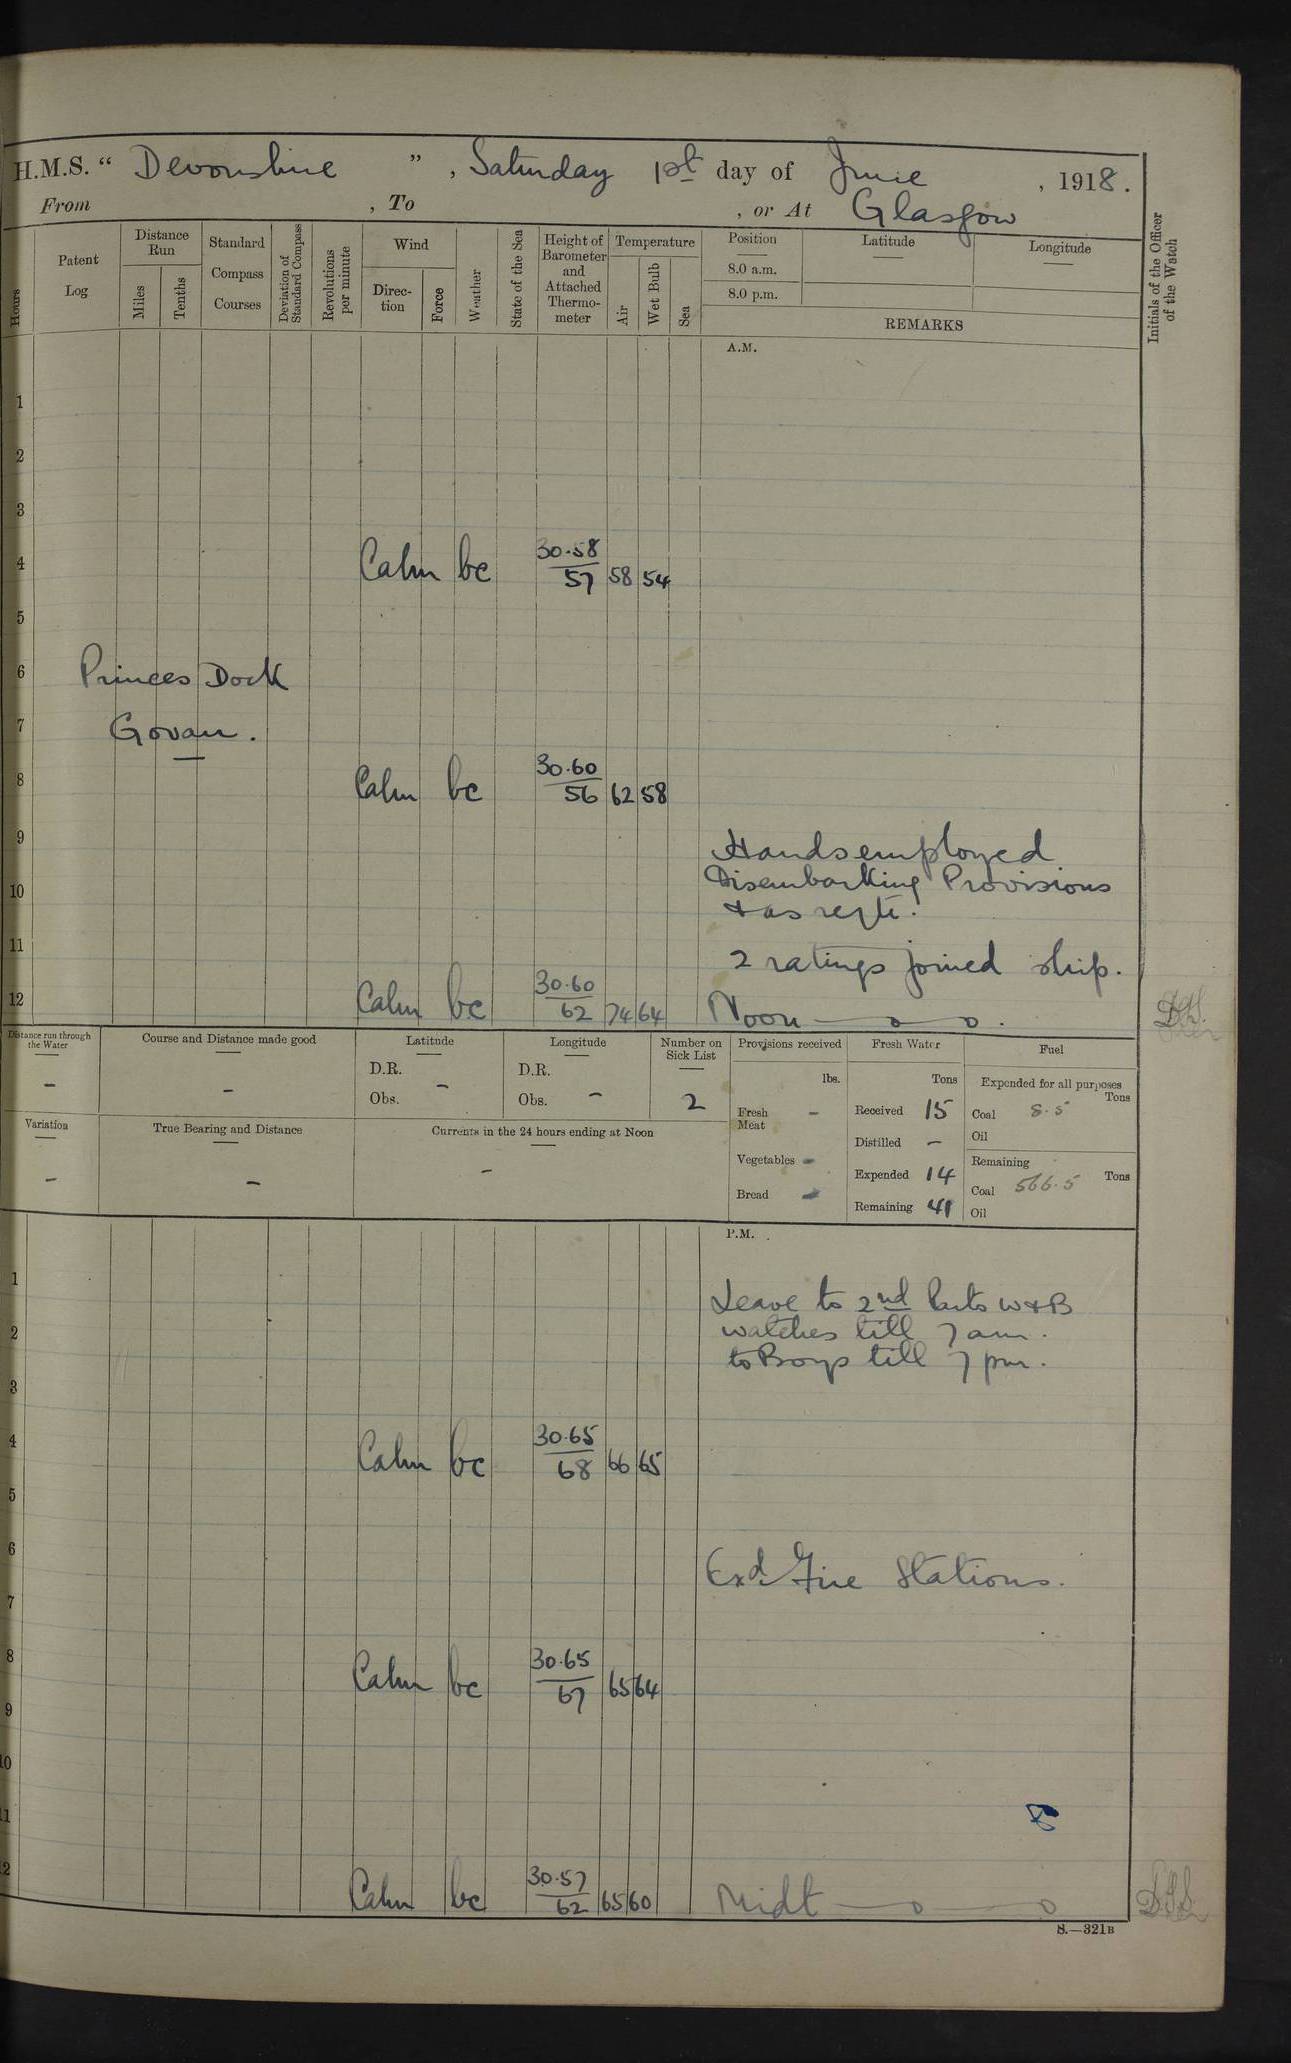 H.M.S. “ Devonshire ”, Saturday 1st day of June , 1918.
From , To , or At Glasgow
Hours
Patent Log
Distance Run
Miles
Tenths
Standard Compass Courses
Deviation of Standard Compass
Revolutions per minute
Wind
Direction
Force
Weather
State of the Sea
Height of Barometer and Attached Thermometer
Temperature
Air
Wet Bulb
Sea
Position
8.0 a.m.
8.0 p.m.
Latitude
Longitude
REMARKS
Initials of the Officer of the Watch
A.M.
1
2
3
4 Calm bc 30.58 57 58 54
5
6 Princes Dock
7 Govan.
8 Calm bc 30.60 56 62 58
9 Hands employed
10 Disembarking Provisions
& as reqte.
11 2 ratings joined ship.
12 Calm bc 30.60 62 74 64 Noon — o o .
Distance run through the Water
-
Course and Distance made good
-
Latitude
D.R. -
Obs.
Longitude
D.R.
Obs. -
Number on Sick List
2
Provisions received
lbs.
Fresh Meat -
Vegetables -
Bread -
Fresh Water
Tons
Received 15
Distilled -
Expended 14
Remaining 41
Fuel
Expended for all purposes
Tons
Coal 8.5
Oil
Remaining
Tons
Coal 566.5
Oil
Variation
-
True Bearing and Distance
-
Currents in the 24 hours ending at Noon
-
P.M.
1 Leave to 2nd Parts W & B
2 watches till 7 am.
to Boys till 7 pm.
3
4 Calm bc 30.65 68 66 65
5
6 Exd. Fire Stations.
7
8 Calm bc 30.65 67 65 64
9
10
11
12 Calm bc 30.57 62 65 60 Midt — o — o
S.—321B